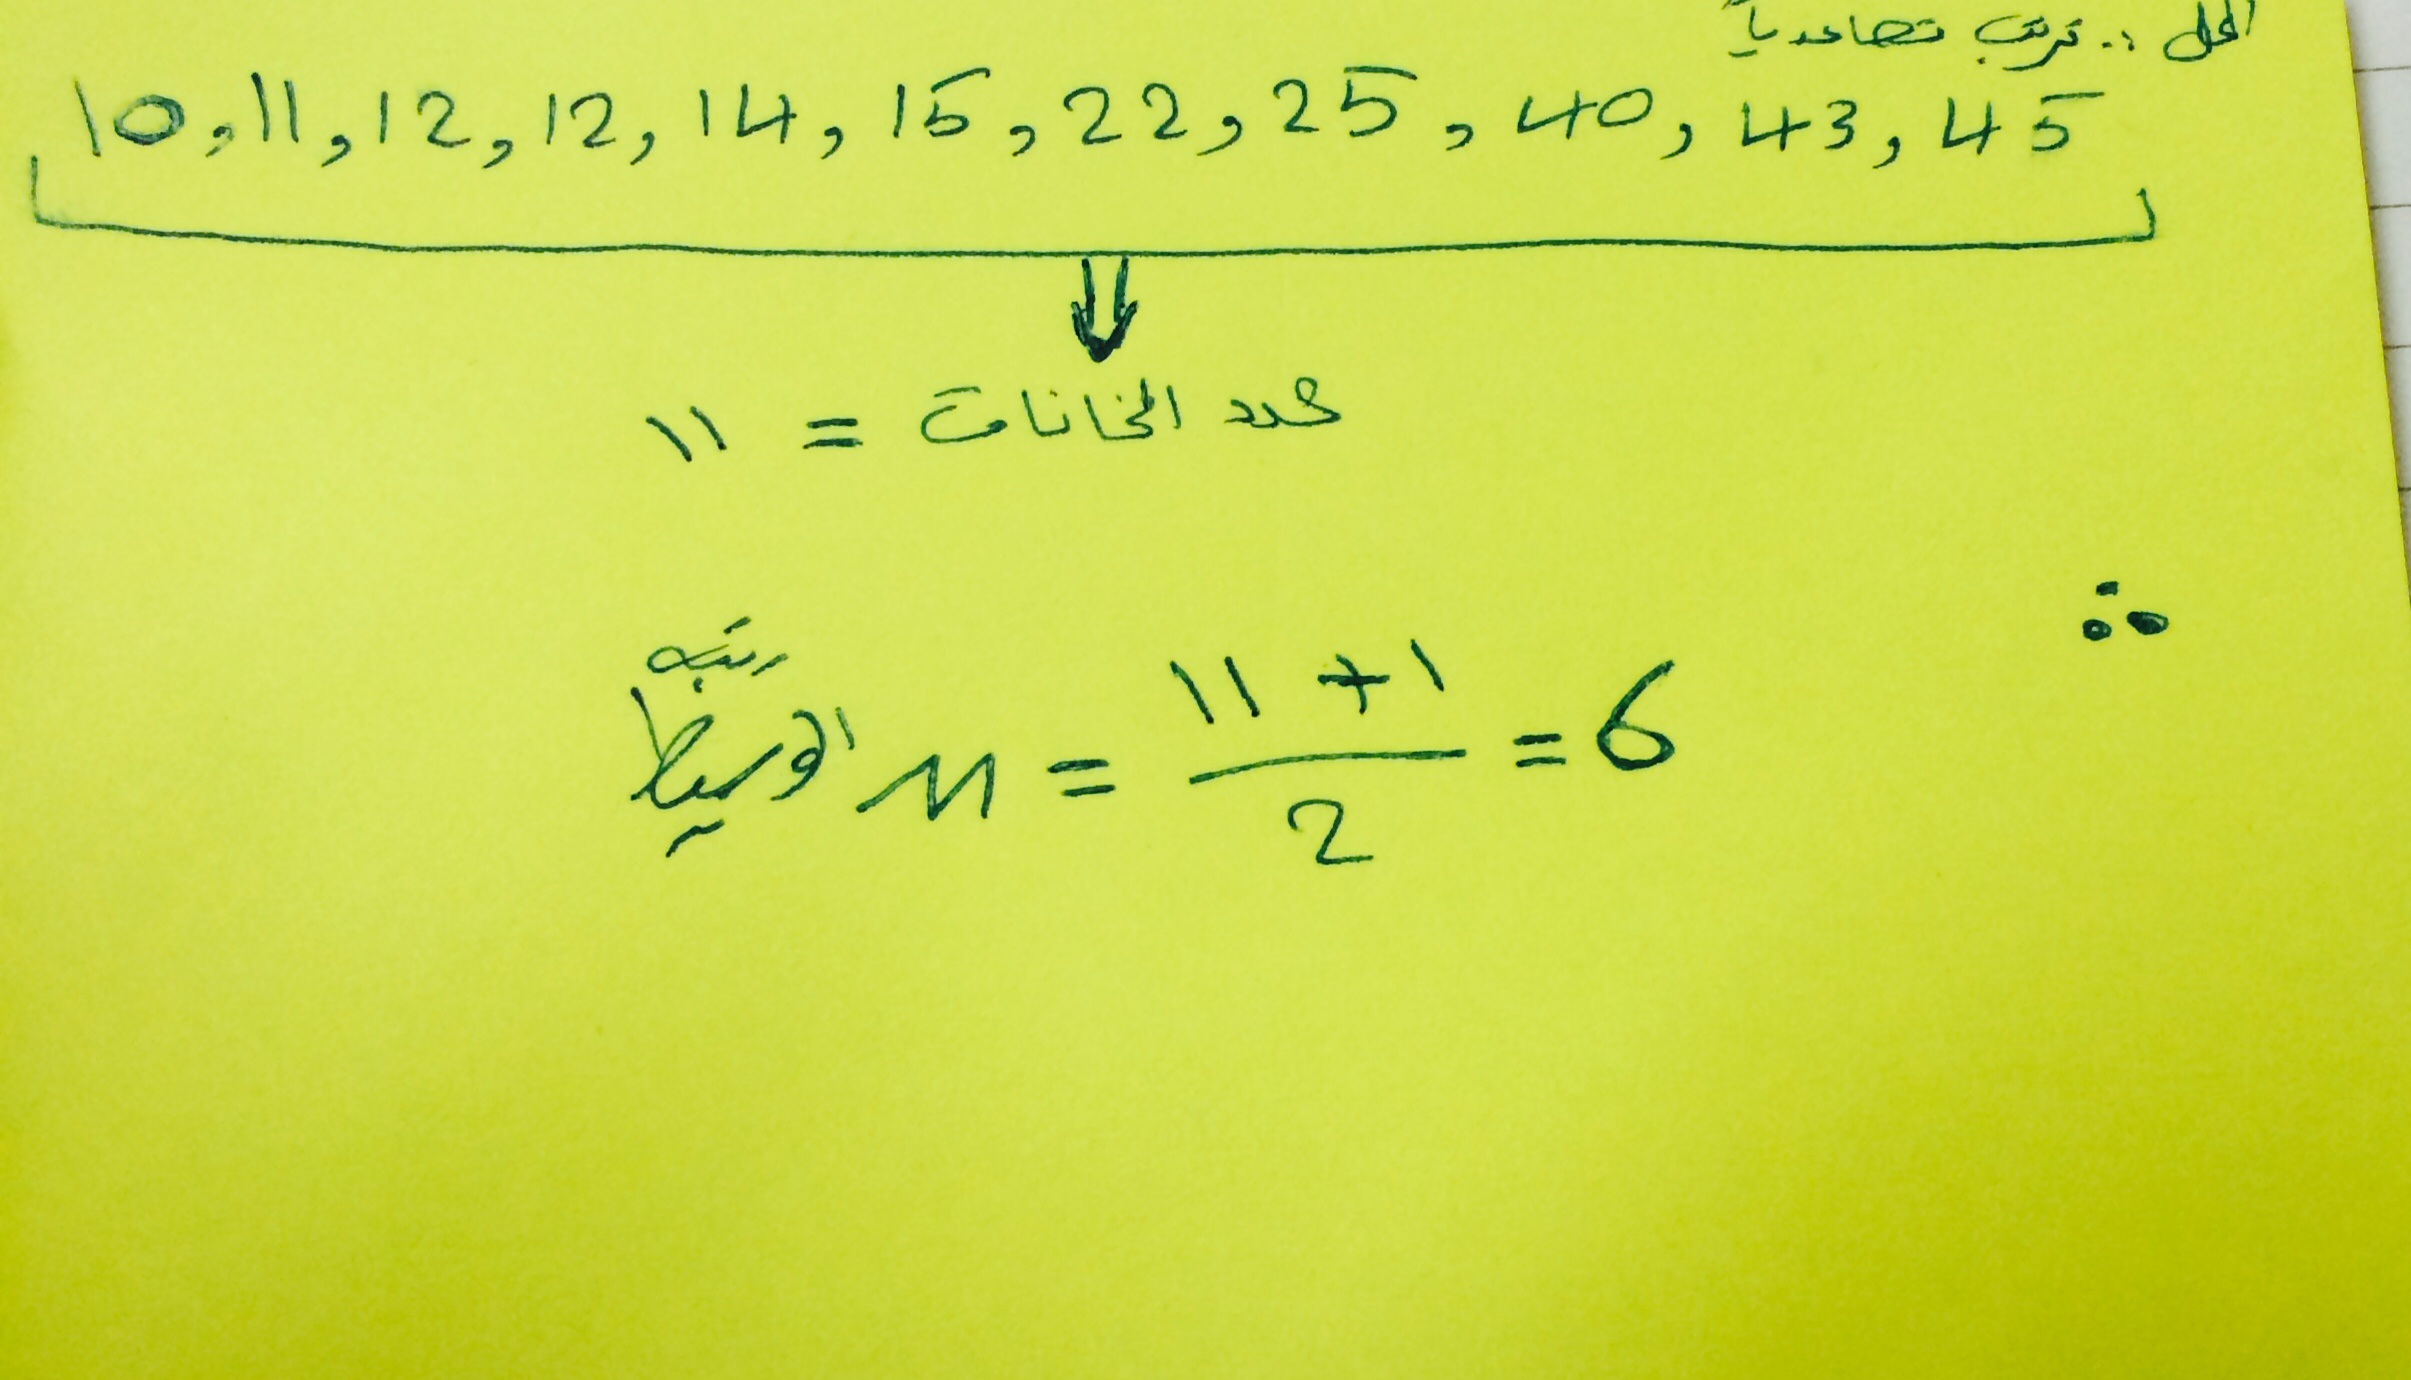 الحل :. نرتب تصاعدياً
10, 11, 12, 12, 14, 15, 22, 25, 40, 43, 45
عدد الخانات = 11
∴
رتبه
الوسيط M = 11 + 1 / 2 = 6